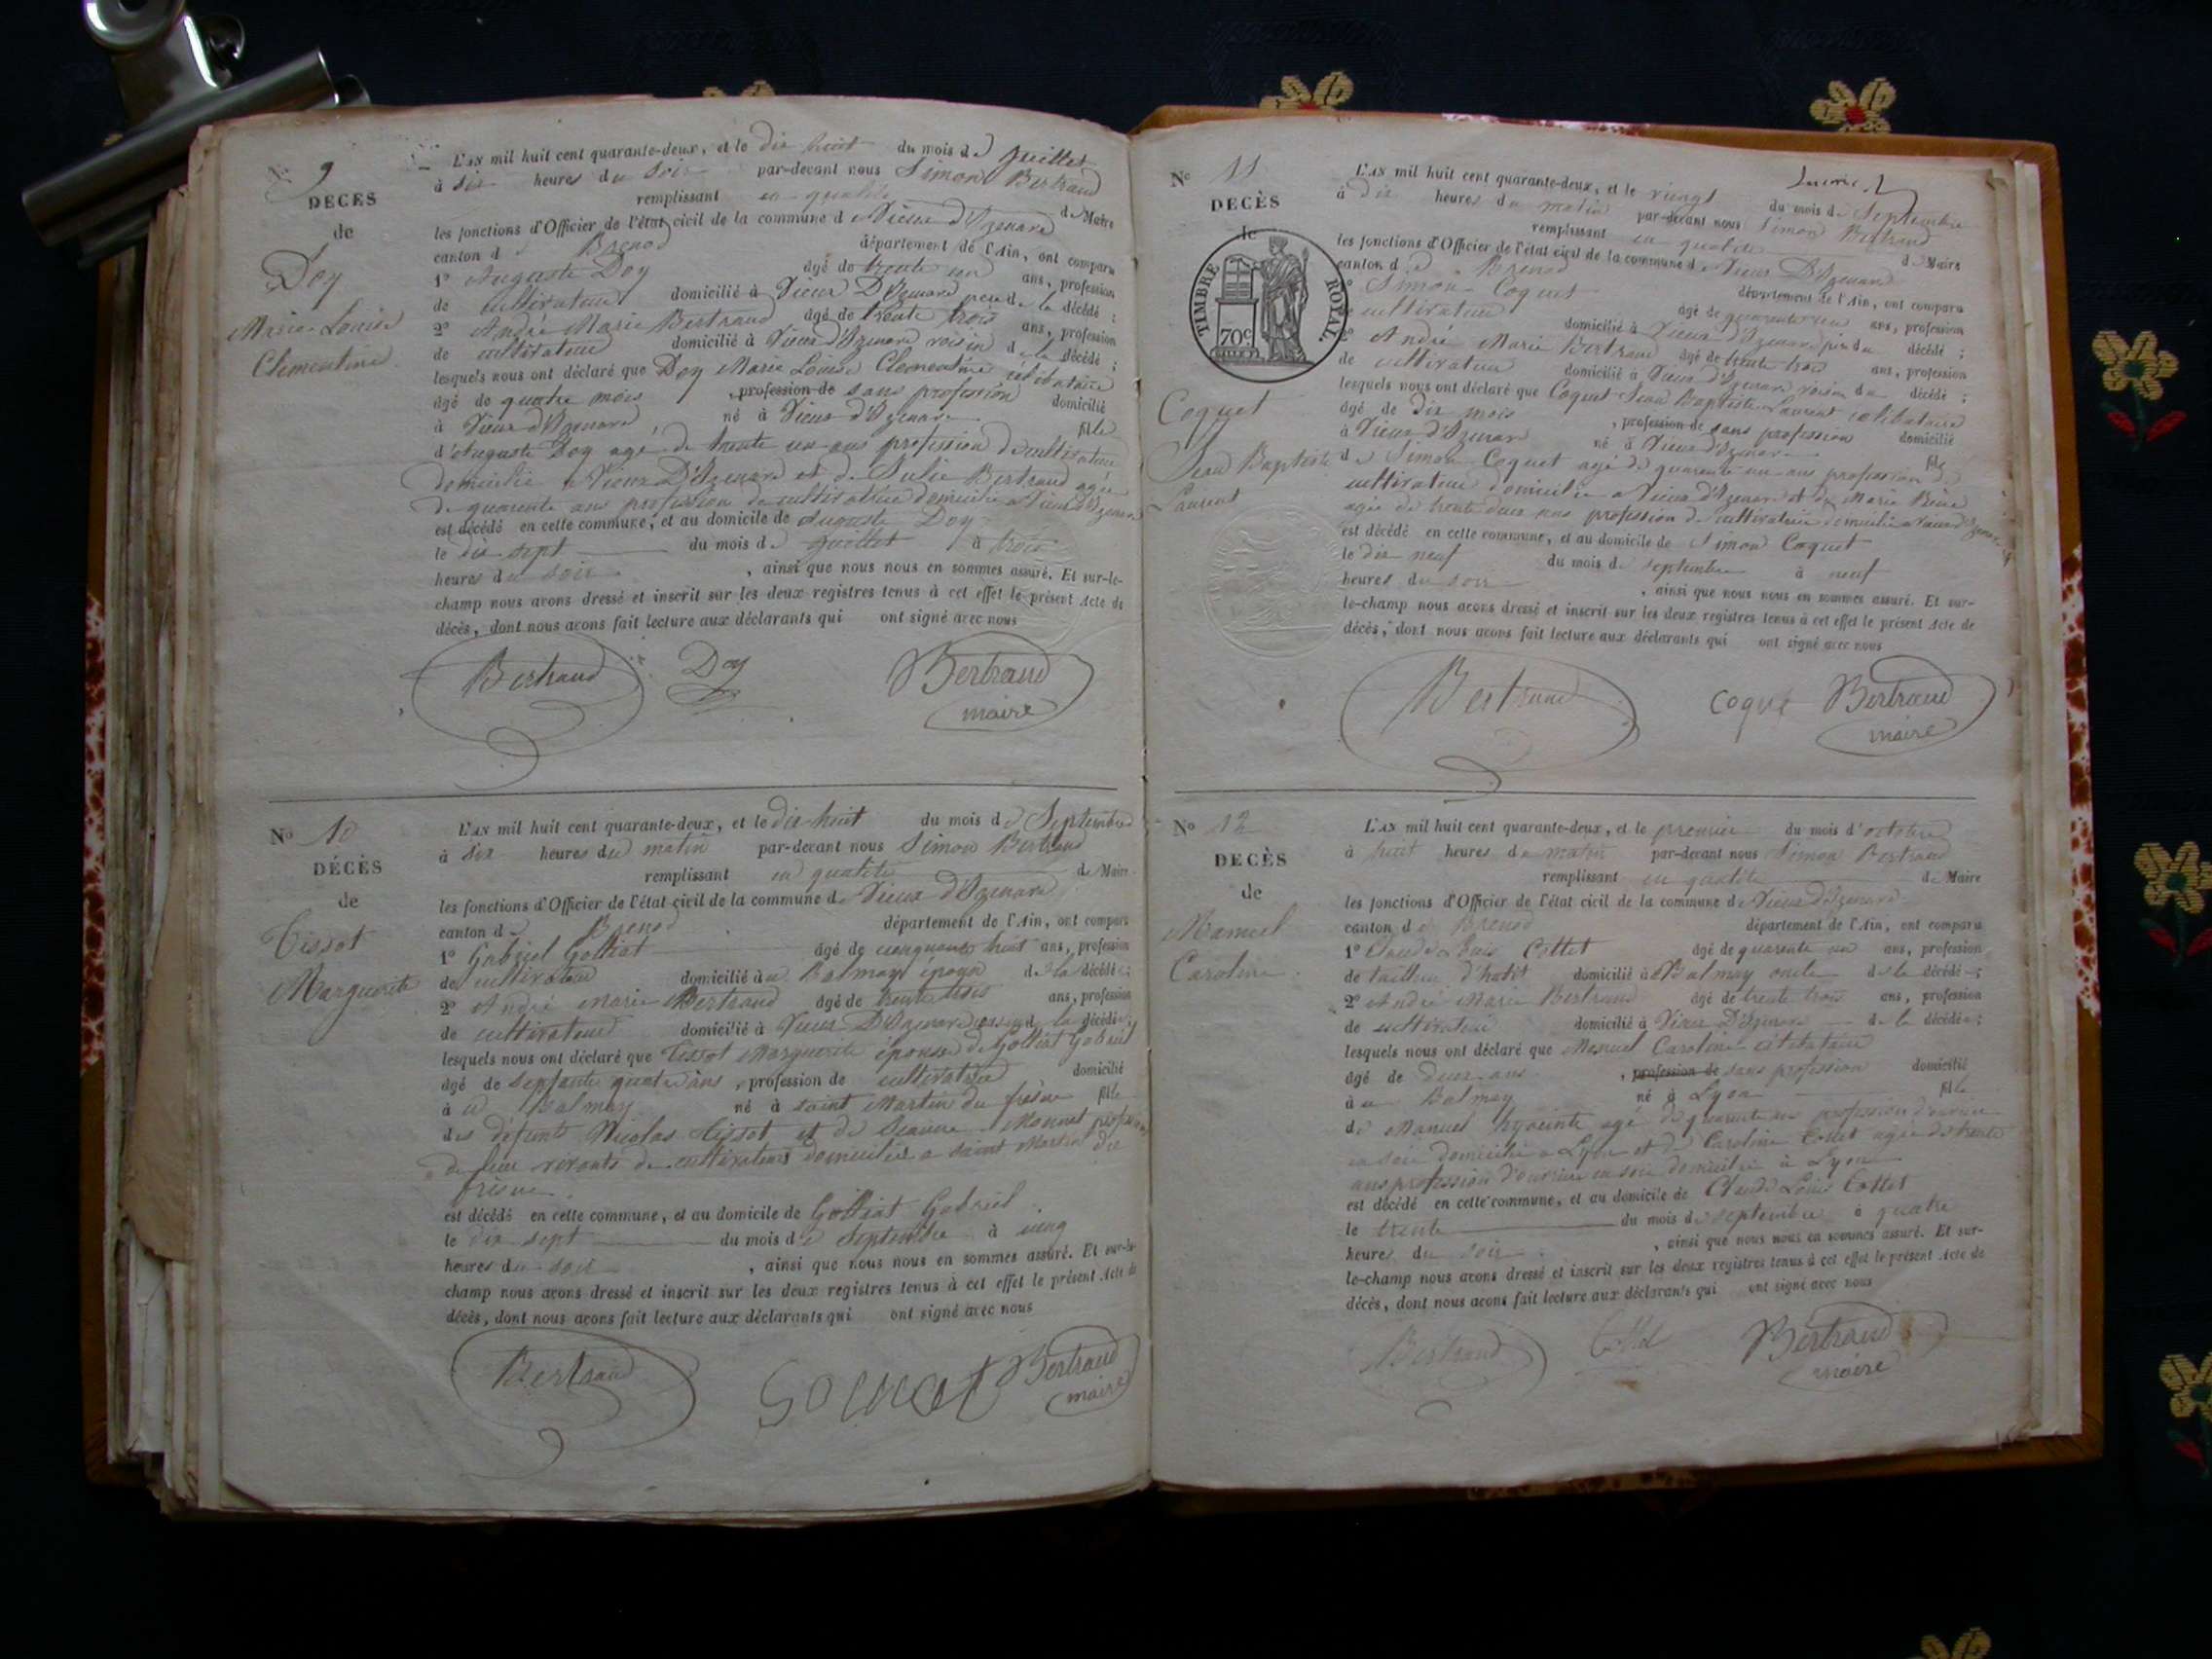 N° 9
DECES
de
Doy
Marie Louise
Clementine
L'AN mil huit cent quarante-deux, et le dix huit du mois de juillet
à six heures du soir par-devant nous Simon Bertrand
remplissant en qualité de Maire
les fonctions d'Officier de l'état civil de la commune de Vieux d'Izenave
canton de Brenod département de l'Ain, ont comparu
1° Auguste Doy âgé de trente un ans, profession
de cultivateur domicilié à Vieux D'Izenave pere de la décédé ;
2° André Marie Bertrand âgé de trente trois ans, profession
de cultivateur domicilié à Vieux d'Izenave voisin de la décédé ;
lesquels nous ont déclaré que Doy Marie Louise Clementine celibataire
âgé de quatre mois , profession de sans profession domicilié
à Vieux d'Izenave né à Vieux d'Izenave fille
d'Auguste Doy agé de trente un ans profession de cultivateur
domicilié a Vieux D'Izenave et de Julie Bertrand agée
de quarente ans profession de cultivatrice domiciliée a Vieux d'Izenave
est décédé en cette commune, et au domicile de Auguste Doy
le dix sept du mois de juillet à trois
heures du soir , ainsi que nous nous en sommes assuré. Et sur-le-
champ nous avons dressé et inscrit sur les deux registres tenus à cet effet le présent Acte de
décès, dont nous avons fait lecture aux déclarants qui ont signé avec nous
Bertrand Doy Bertrand
maire
N° 10
DÉCÈS
de
Tissot
Marguerite
L'AN mil huit cent quarante-deux, et le dix-huit du mois de Septembre
à six heures du matin par-devant nous Simon Bertrand
remplissant en qualité de Maire
les fonctions d'Officier de l'état civil de la commune de Vieux d'Izenave
canton de Brenod département de l'Ain, ont comparu
1° Gabriel Golliat âgé de cinquante huit ans, profession
de cultivateur domicilié à Balmay époux de la décédée ;
2° André Marie Bertrand âgé de trente trois ans, profession
de cultivateur domicilié à Vieux D'Izenave de la décédée ;
lesquels nous ont déclaré que Tissot Marguerite épouse de Golliat Gabriel
âgé de septante quatre ans , profession de cultivatrice domicilié
à Balmay né à saint Martin du frêne fille
des défunts Nicolas Tissot et de Jeanne Monnet profession
de leur vivants de cultivateurs domiciliés a saint Martin du
frêne
est décédé en cette commune, et au domicile de Golliat Gabriel
le dix sept du mois de Septembre à cinq
heures du soir , ainsi que nous nous en sommes assuré. Et sur-le-
champ nous avons dressé et inscrit sur les deux registres tenus à cet effet le présent Acte de
décès, dont nous avons fait lecture aux déclarants qui ont signé avec nous
Bertrand Bertrand
maire
N° 11
DECÈS
de
TIMBRE ROYAL.
70c
Coquet
Jean Baptiste
Laurent
L'AN mil huit cent quarante-deux, et le vingt du mois de Septembre
à dix heures du matin par-devant nous Simon Bertrand
remplissant en qualité de Maire
les fonctions d'Officier de l'état civil de la commune de Vieux D'Izenave
canton de Brenod département de l'Ain, ont comparu
Simon Coquet âgé de quarante un ans, profession
cultivateur domicilié à Vieux d'Izenave pere du décédé ;
André Marie Bertrand âgé de trente trois ans, profession
de cultivateur domicilié à Vieux d'Izenave voisin du décédé ;
lesquels nous ont déclaré que Coquet Jean Baptiste Laurent celibataire
âgé de dix mois , profession de sans profession domicilié
à Vieux d'Izenave né à Vieux d'Izenave fils
de Simon Coquet agé de quarente un ans profession de
cultivateur domicilié a Vieux d'Izenave et de Marie
agée de trente deux ans profession de cultivatrice domiciliée a Vieux d'Izenave
est décédé en cette commune, et au domicile de Simon Coquet
le dix neuf du mois de septembre à neuf
heures du soir , ainsi que nous nous en sommes assuré. Et sur-
le-champ nous avons dressé et inscrit sur les deux registres tenus à cet effet le présent Acte de
décès, dont nous avons fait lecture aux déclarants qui ont signé avec nous
Bertrand Coquet Bertrand
maire
N° 12
DECÈS
de
Manuel
Caroline
L'AN mil huit cent quarante-deux, et le premier du mois d'octobre
à huit heures du matin par-devant nous Simon Bertrand
remplissant en qualité de Maire
les fonctions d'Officier de l'état civil de la commune de Vieux d'Izenave
canton de Brenod département de l'Ain, ont comparu
1° Claude Louis Cottet âgé de quarente un ans, profession
de tailleur d'habit domicilié à Balmay oncle de la décédée ;
2° André Marie Bertrand âgé de trente trois ans, profession
de cultivateur domicilié à Vieux D'Izenave de la décédée ;
lesquels nous ont déclaré que Manuel Caroline celibataire
âgé de deux ans , profession de sans profession domicilié
à Balmay né à Lyon fille
de Manuel hyacinte agé de quarente un profession d'ouvrier
en soie domicilié a Lyon et de Caroline Cottet agée de trente
ans profession d'ouvrière en soie domiciliée à Lyon
est décédé en cette commune, et au domicile de Claude Louis Cottet
le trente du mois de septembre à quatre
heures du soir , ainsi que nous nous en sommes assuré. Et sur-
le-champ nous avons dressé et inscrit sur les deux registres tenus à cet effet le présent Acte de
décès, dont nous avons fait lecture aux déclarants qui ont signé avec nous
Bertrand Cottet Bertrand
maire